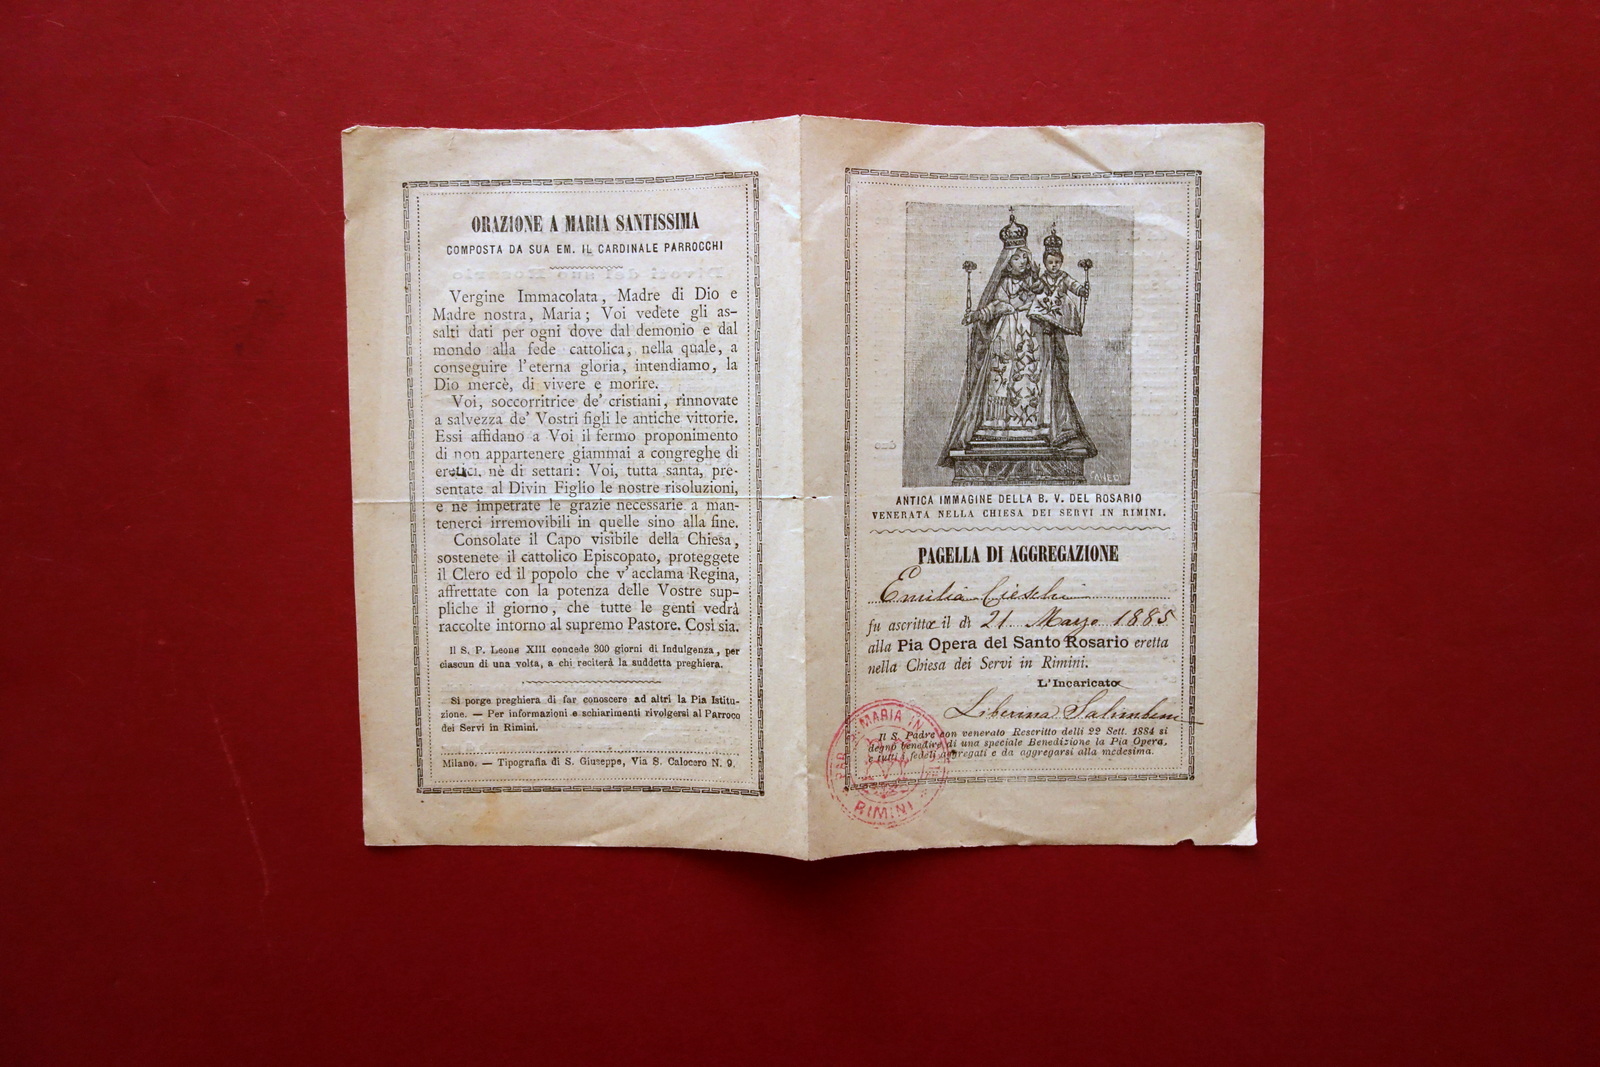 ORAZIONE A MARIA SANTISSIMA
COMPOSTA DA SUA EM. IL CARDINALE PARROCCHI
Vergine Immacolata, Madre di Dio e
Madre nostra, Maria; Voi vedete gli as-
salti dati per ogni dove dal demonio e dal
mondo alla fede cattolica, nella quale, a
conseguire l'eterna gloria, intendiamo, la
Dio mercè, di vivere e morire.
Voi, soccorritrice de' cristiani, rinnovate
a salvezza de' Vostri figli le antiche vittorie.
Essi affidano a Voi il fermo proponimento
di non appartenere giammai a congreghe di
eretici, nè di settari: Voi, tutta santa, pre-
sentate al Divin Figlio le nostre risoluzioni,
e ne impetrate le grazie necessarie a man-
tenerci irremovibili in quelle sino alla fine.
Consolate il Capo visibile della Chiesa,
sostenete il cattolico Episcopato, proteggete
il Clero ed il popolo che v'acclama Regina,
affrettate con la potenza delle Vostre sup-
pliche il giorno, che tutte le genti vedrà
raccolte intorno al supremo Pastore. Così sia.
Il S. P. Leone XIII concede 300 giorni di Indulgenza, per
ciascun di una volta, a chi reciterà la suddetta preghiera.
Si porge preghiera di far conoscere ad altri la Pia Istitu-
zione. — Per informazioni e schiarimenti rivolgersi al Parroco
dei Servi in Rimini.
Milano. — Tipografia di S. Giuseppe, Via S. Calocero N. 9.
ANTICA IMMAGINE DELLA B. V. DEL ROSARIO
VENERATA NELLA CHIESA DEI SERVI IN RIMINI.
PAGELLA DI AGGREGAZIONE
Emilia
fu ascritta il dì 21 Marzo 1885
alla Pia Opera del Santo Rosario eretta
nella Chiesa dei Servi in Rimini.
L'Incaricata
Liberina Salimbeni
Il S. Padre con venerato Rescritto delli 22 Sett. 1884 si
degnò benedire di una speciale Benedizione la Pia Opera,
e tutti i fedeli aggregati e da aggregarsi alla medesima.
MARIA IN
RIMINI